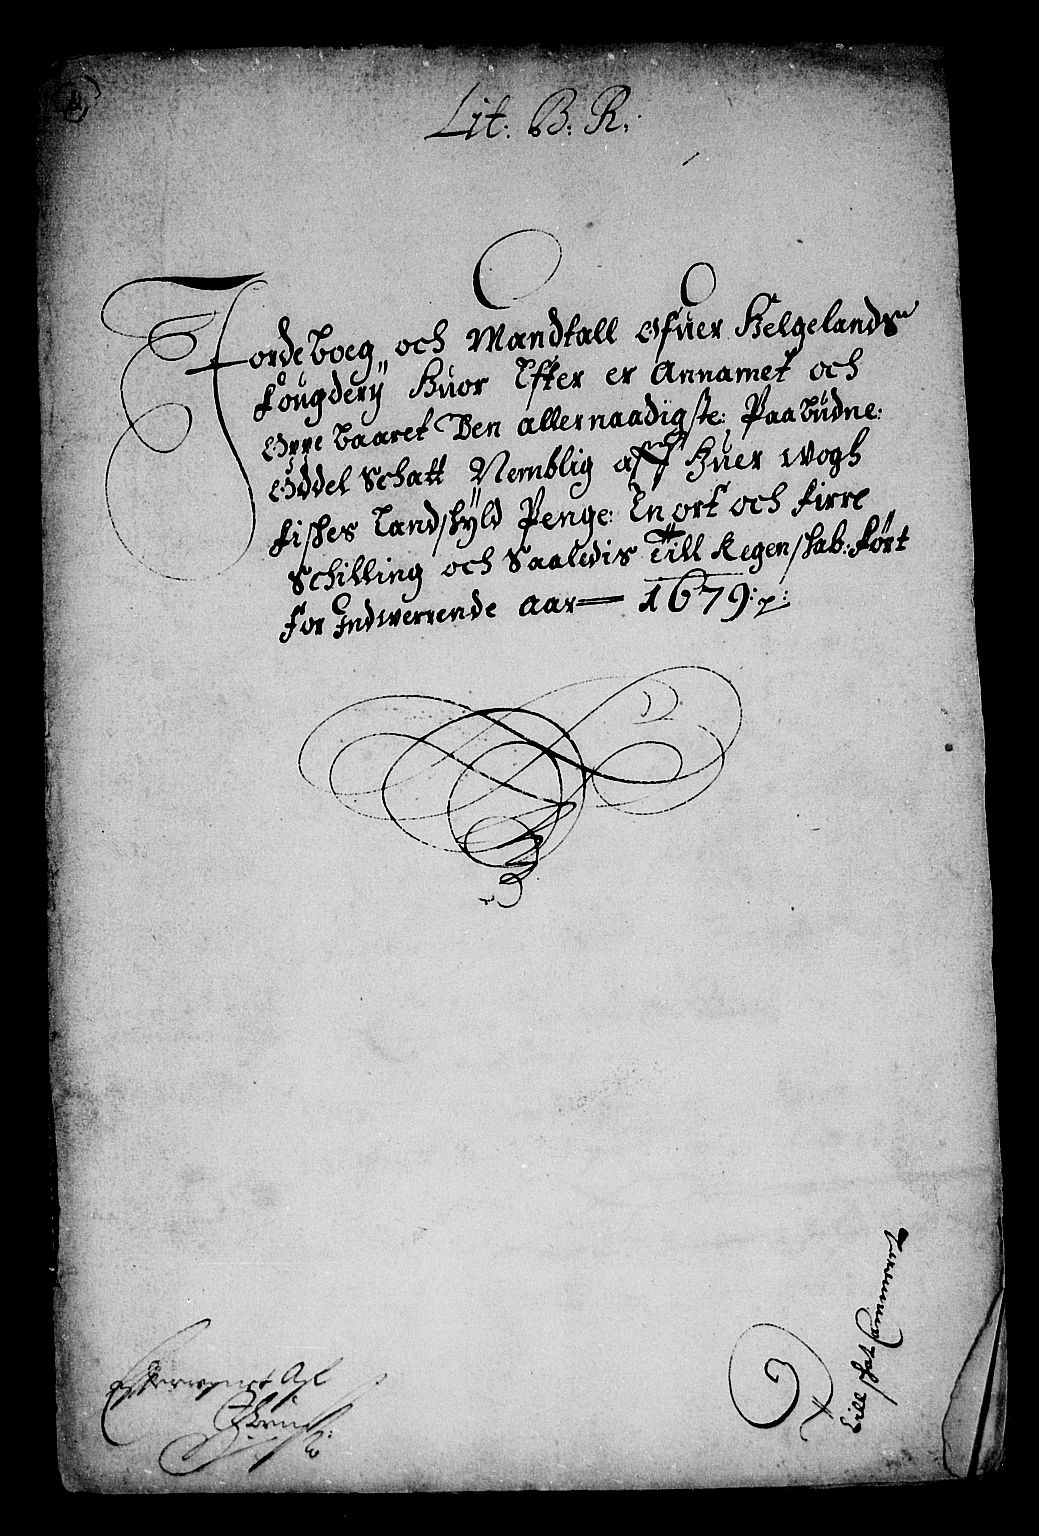 Lit. B. R.
Jordeboeg och Mandtall Ofuer Helgelands
Fougderÿ Huor Efter er Annamet och
Oppebaaret Den allernaadigste Paabudne:
Oddel Schatt Nemblig aff Huer wogh
Fisches Landschÿld Penge: En ort och Firre
Schilling och Saaledis Till Regenschab: Ført
for Indwerrende Aar 1679:
Till schat Cammerret